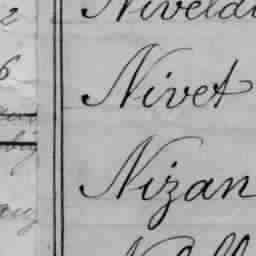 Niveld
2
6
Nivet
Nizan